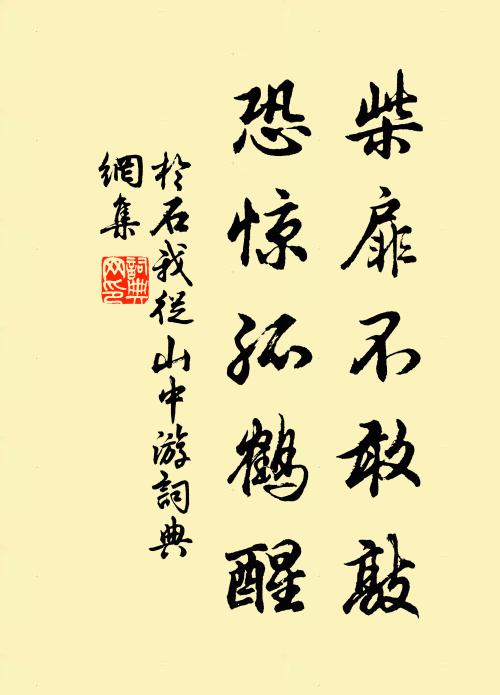 柴扉不敢敲
恐惊孤鹤醒
於石我從山中游詞典
網集
詞典網印